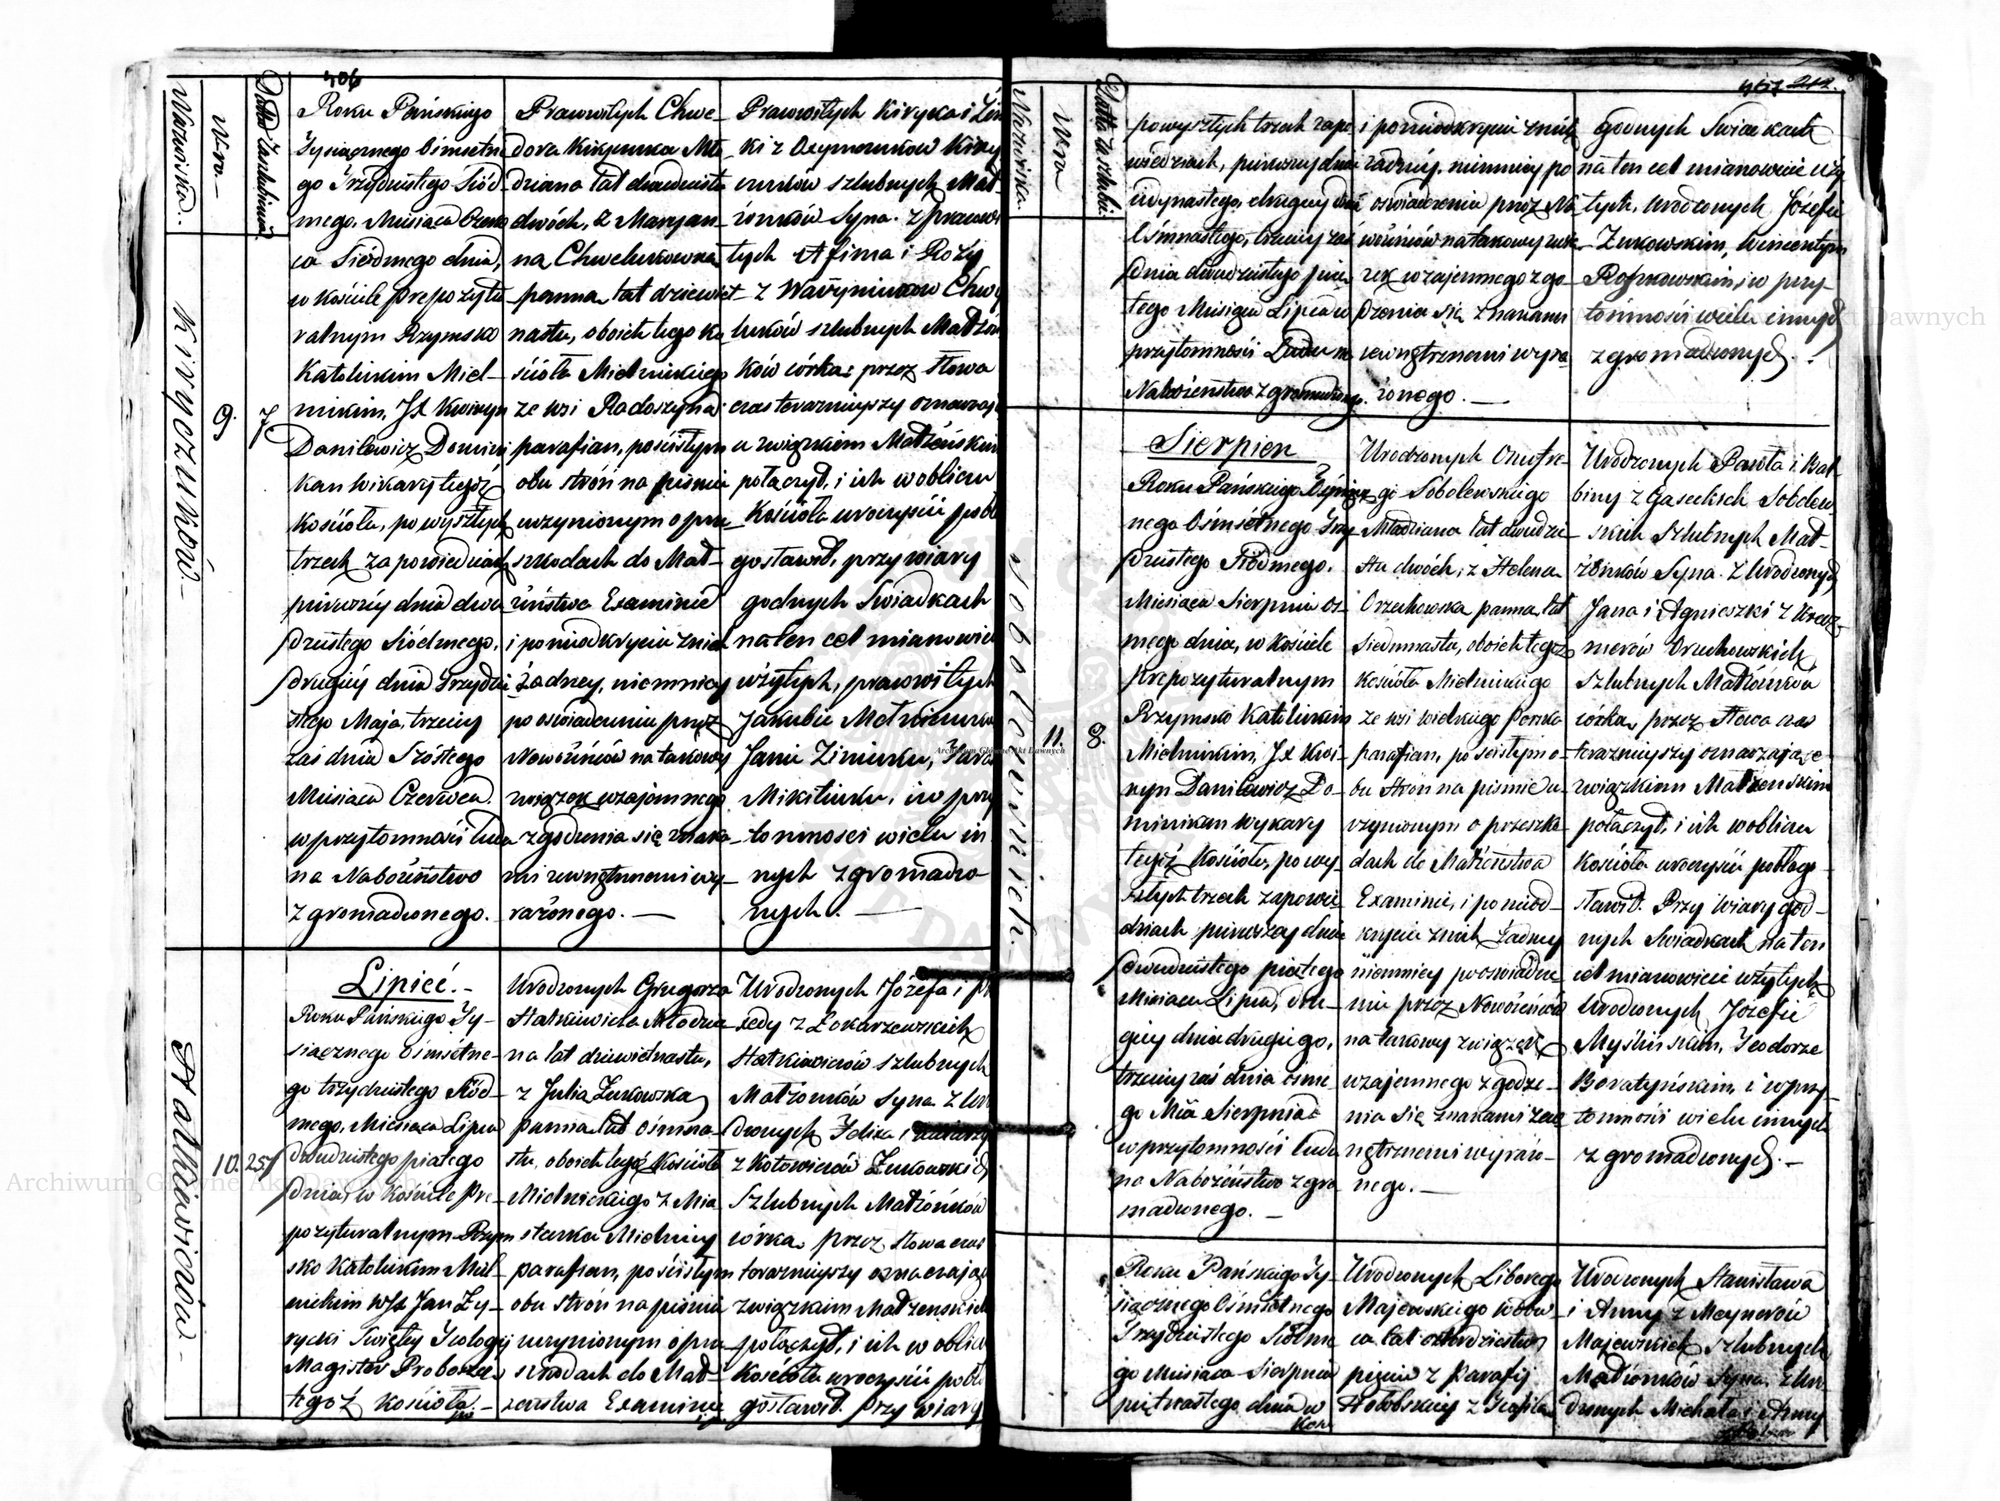 406
Nazwiska.
N-ro
Datta Zaslubienia.
Kiryczuków.
9.
7
Roku Pańskiego
Tysiącznego Ośmsetne
go Trzydziestego Siód
mego, Miesiąca Czerw
ca Siódmego dnia,
w kościele prepozytu
ralnym Rzymsko
Katolickim Miel-
nickim, JX Kwiryn
Danilewicz Domini
kan Wikary tegóż
Kościoła, po wyszłych
trzech zapowiedziach
pierwszey dnia dwu
dziestego Siódmego,
drugiey dnia Trzydzie
stego Maja, trzeciey
zaś dnia Szóstego
Miesiąca Czerwca.
w przytomności ludu
na Nabożeństwo
zgromadzonego.
Prawowitych Chwe-
dora Kirycznka Mło
dziana lat dwadzieścia
dwóch, z Maryan-
na Chweluk
panna lat dziewięt
nastu, oboich tego Ko
ścioła Mielnickiego
ze wsi Radoszyna
parafian, pościsłym
obu stron na piśmie
uczynionym o prze
szkodach do Mał-
żeństwa Examinie
i ponieodkryciu żadnych
żadney, niemniey
po oświadczeniu przez
Nowożeńców na takowy
związek wzajemnego
zgodzenia się znaka
mi zewnętrznemi wy-
rażonego.
Prawowitych Kiryka i
ki z Kiry
czuków szlubnych Mał-
żonków Syna. z prawowi
tych Afima i Rozy
z Chwe
luków szlubnych Małżon
ków córka: przez słowa
czas teraznieyszy oznaczają
ce związkiem Małżeńskim
połączył, i ich w obliczu
Kościoła uroczyście pobł
gosławił, przy wiary
godnych Świadkach
na ten cel mianowicie
użytych, prawowitych
Jakubie
Janie
i w przy
tomności wielu in
nych zgromadzo
nych.
Statkiewiczów
10.
25
Lipieć.
Roku Pańskiego Ty-
siącznego Ośmsetne-
go trzydziestego Siód-
mego, Miesiąca Lipca
dwudziestego piątego
dnia, w kościele Pre-
pozyturalnym Rzym
sko Katolickim Miel-
nickim WJX Jan Ży-
rycki Świętey Teologij
Magister Proboszcz
tegoż kościoła,
Urodzonych Grzegorza
Statkiewicza Młodzia
na lat dziewietnastu,
z Julia Zukowska
panna lat ośmna
stu, oboich tegoż Kościoła
Mielnickiego z Mia
steczka Mielnicy
parafian, pościsłym
obu stron na piśmie
uczynionym o prze
szkodach do Mał-
żeństwa Examinie
Urodzonych Józefa i
z Tokarzewskich
Statkiewiczów szlubnych
Małżonków Syna z Uro
dzonych Felixa i
z Kotowiczów Zukowskich
Szlubnych Małżonków
córka, przez słowa czas
terazniejszy oznaczające
związkiem Małżenskim
połączył, i ich w obliczu
Kościoła uroczyście pobło
gosławił. Przy wiary
407 212.
Nazwiska.
N-ro
Datta zaszlubi.
powyszłych trzech zapo
wiedziach, pierwszey dnia
iedynastego, drugiey dnia
Ośmnastego, trzeciey zaś
dnia dwudziestego pią
tego Miesiąca Lipca w
przytomności Ludu na
Nabożeństwo zgromadzonego
i ponieodkryciu żadnych
żadney, niemniey po
oświadczeniu przez No
wożeńców na takowy zwią
zek wzajemnego zgo-
dzenia się znakami
zewnętrznemi wyra
żonego.
godnych Świadkach
na ten cel mianowicie uży
tych, Urodzonych Józefie
Zukowskim, Wincentym
Roszkowskim, i w przy-
tomności wielu innych
zgromadzonych.
Sobolewskich.
11.
8.
Sierpien
Roku Pańskiego Tysiącz
nego Ośmsetnego Trzy
dziestego Siódmego,
Miesiąca Sierpnia Os-
mego dnia, w kościele
Prepozyturalnym
Rzymsko Katolickim
Mielnickim, JX Kwi-
ryn Danilewicz Do-
minikan Wykary
tegóż Kościoła, po wy-
szłych trzech zapowie
dziach pierwszey dnia
dwudziestego piątego
Miesiąca Lipca, dru-
giey dnia drugiego,
trzeciey zaś dnia osme
go Mca Sierpnia
w przytomności ludu
na Nabożeństwo zgro
madzonego.
Urodzonych Onufre-
go Sobolewskiego
Młodziana lat dwudzie
stu dwóch, z Helena
Orzechowska panna, lat
Siedmnastu, oboich tegoż
Kościoła Mielnickiego
ze wsi Wielkiego Porska
parafian, pościsłym o-
bu stron na pismie u-
czynionym o przeszko-
dach do Małżeństwa
Examinie, i po nieod-
kryciu żadnych żadney
niemniey po oswiadcze
niu przez Nowożeńców
na takowy związek
wzajemnego zgodze-
nia się znakami zew
nętrznemi wyrażo-
nego.
Urodzonych Pawła i Bal
biny z Gaseckich Sobolew
skich Szlubnych Mał-
żonków Syna. z Urodzonych
Jana i Agnieszki z
Orzechowskich,
szlubnych Małżonków
córka, przez słowa czas
teraznieyszy oznaczające
związkiem Małżenskim
połączył, i ich w obliczu
Kościoła uroczyście pobłogo-
sławił. Przy wiary god-
nych Świadkach na ten
cel mianowicie użytych
Urodzonych Józefie
Myślińskim, Teodorze
Boratyńskim, i w przy-
tomności wielu innych
zgromadzonych.
Roku Pańskiego Ty-
siącznego Ośmsetnego
Trzydziestego Siódme
go Miesiąca Sierpnia
piętnastego dnia w
Urodzonych Liborego
Majewskiego wdow
ca lat czterdziestu
pięciu z Parafij
Hołobskiey z Teofila
Urodzonych Stanisława
i Anny z Meynerów
Majewskich szlubnych
Małżonków Syna, z Uro-
dzonych Michała i Anny
Archiwum Główne Akt Dawnych